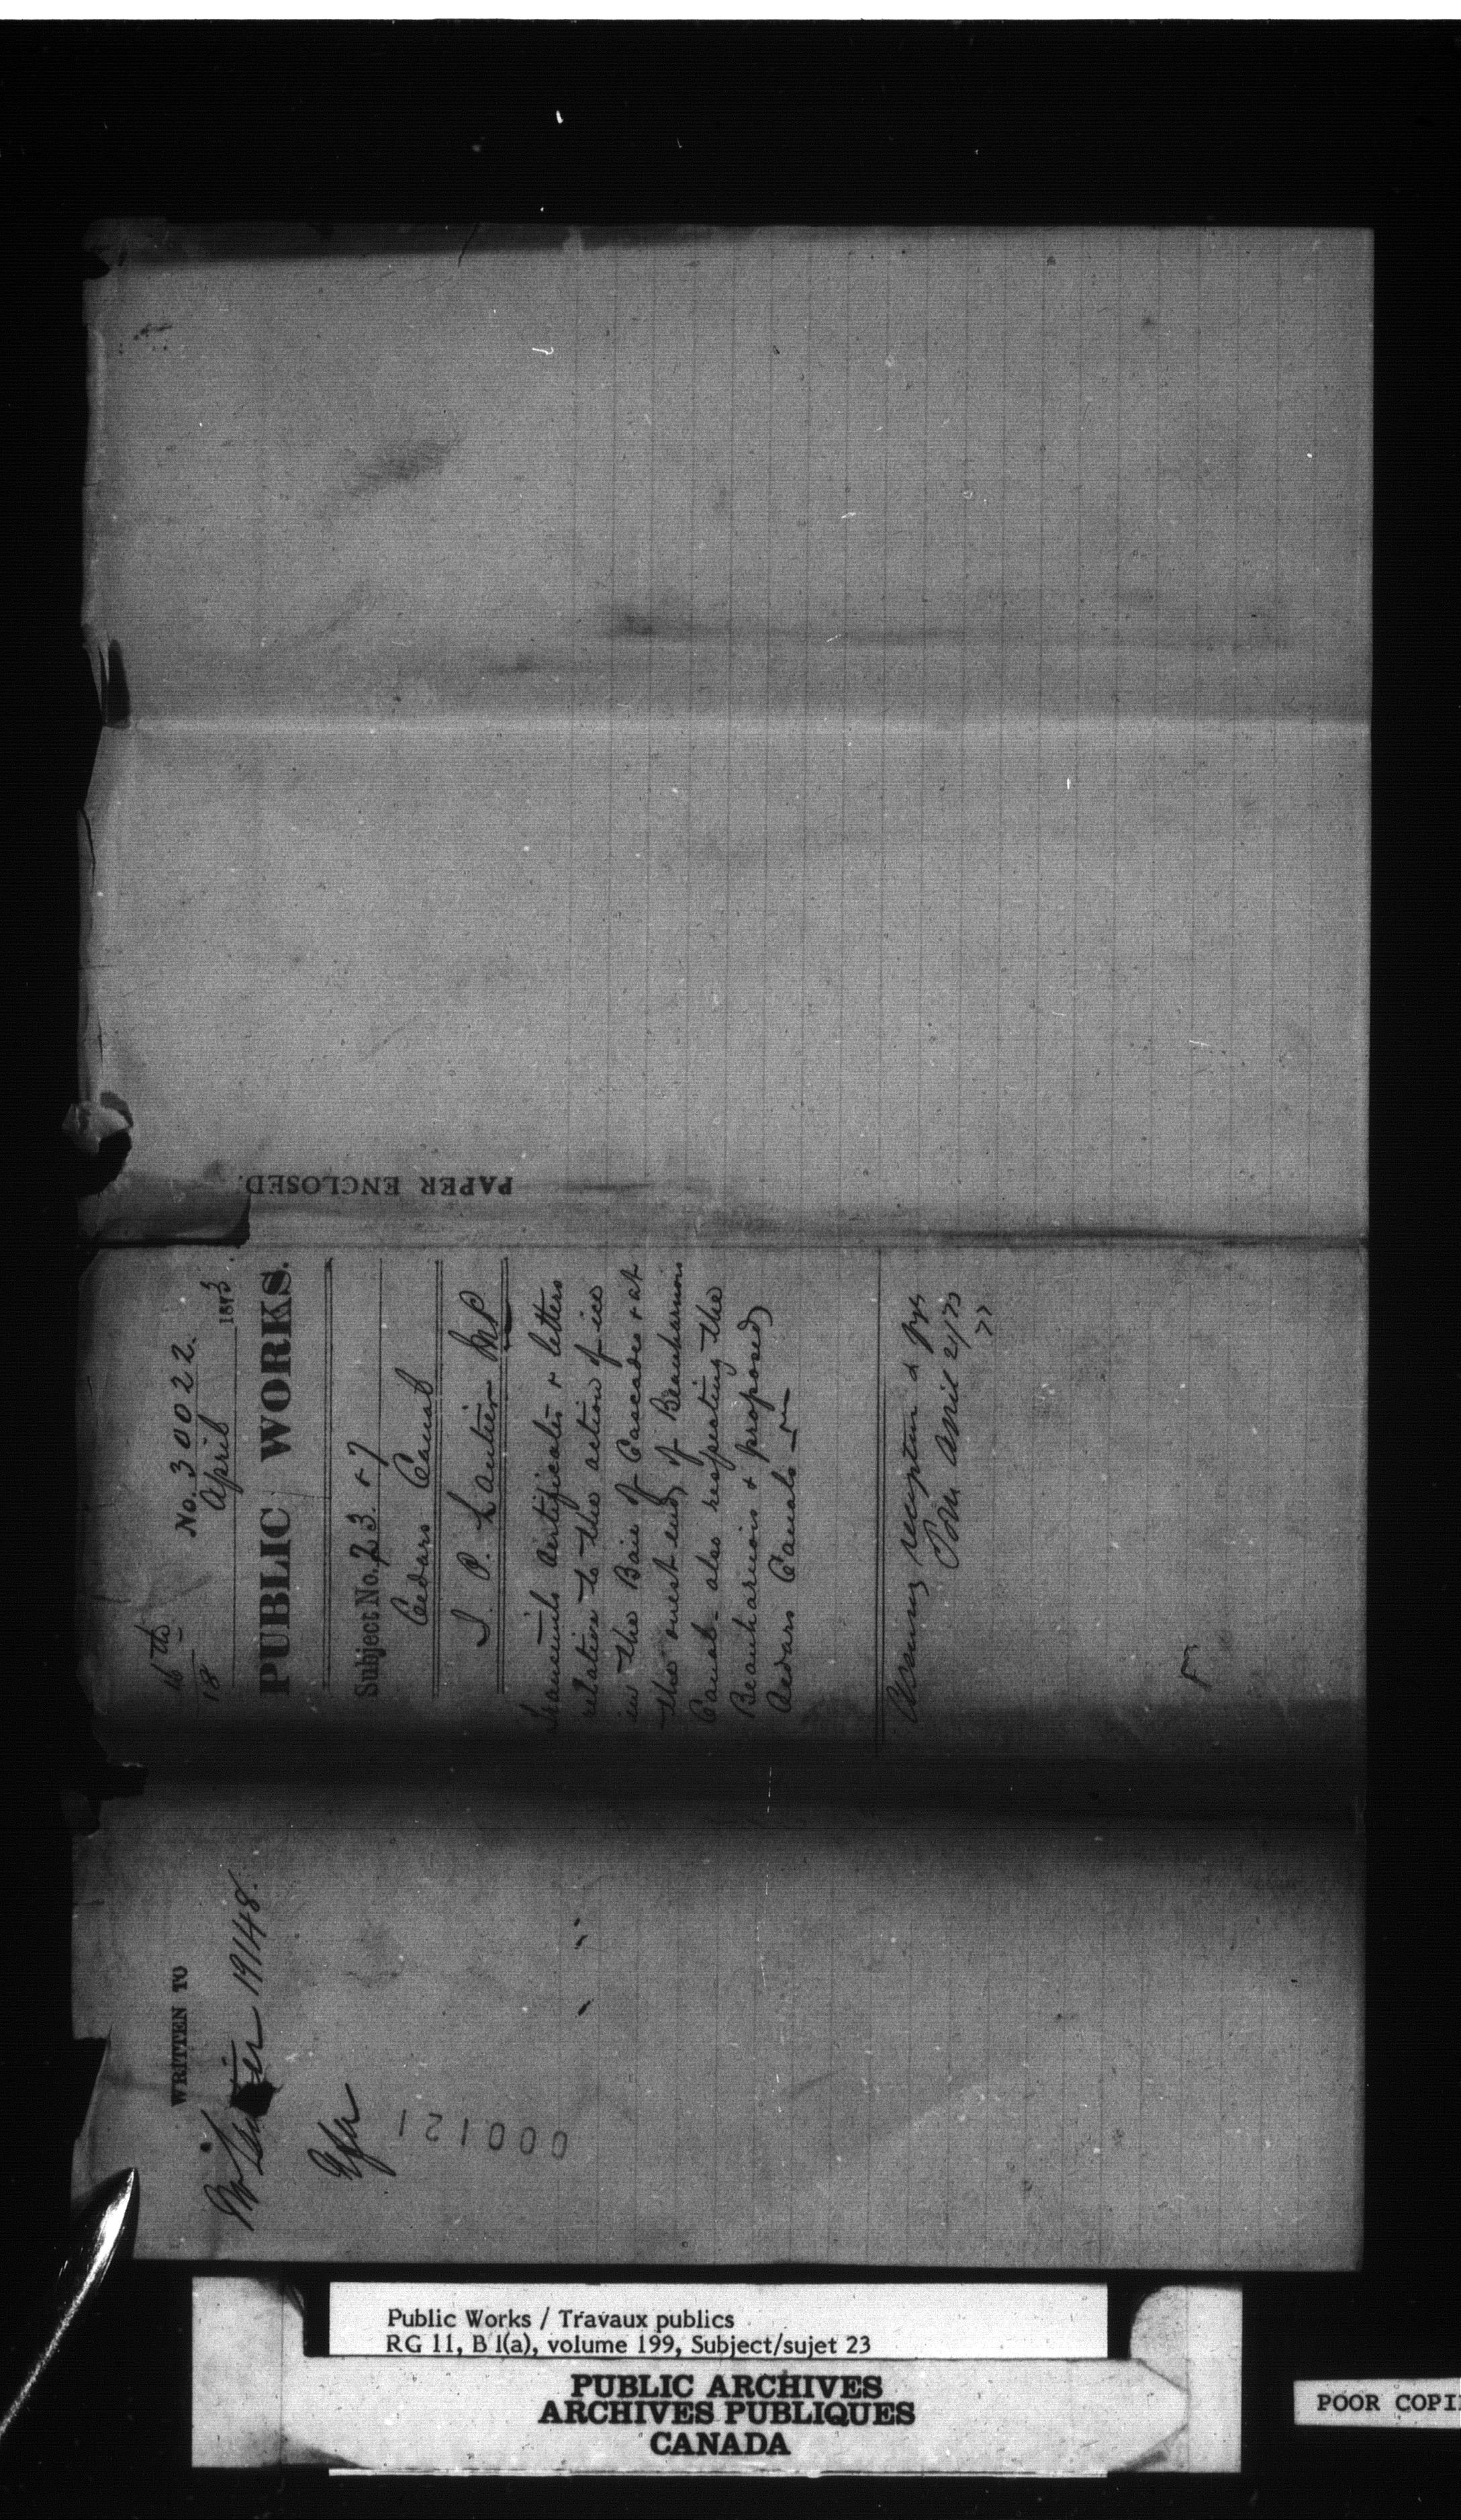 16th
18
No. 30022.
April 1873
PUBLIC WORKS.
Subject No. 23. & 7
Cedars Canal
J. P. Lantier MP
Transmits Certificates & letters
relative to the action of ice
in the Baie of Cascades & at
the west end of Beauharnois
Canal. also respecting the
Beauharnois & proposed
Cedars Canals
reception &
April 21/73
PAPER ENCLOSED.
WRITTEN TO
Mr Lantier 19148.
000121
Public Works / Travaux publics
RG 11, B 1(a), volume 199, Subject/sujet 23
PUBLIC ARCHIVES
ARCHIVES PUBLIQUES
CANADA
POOR COPI